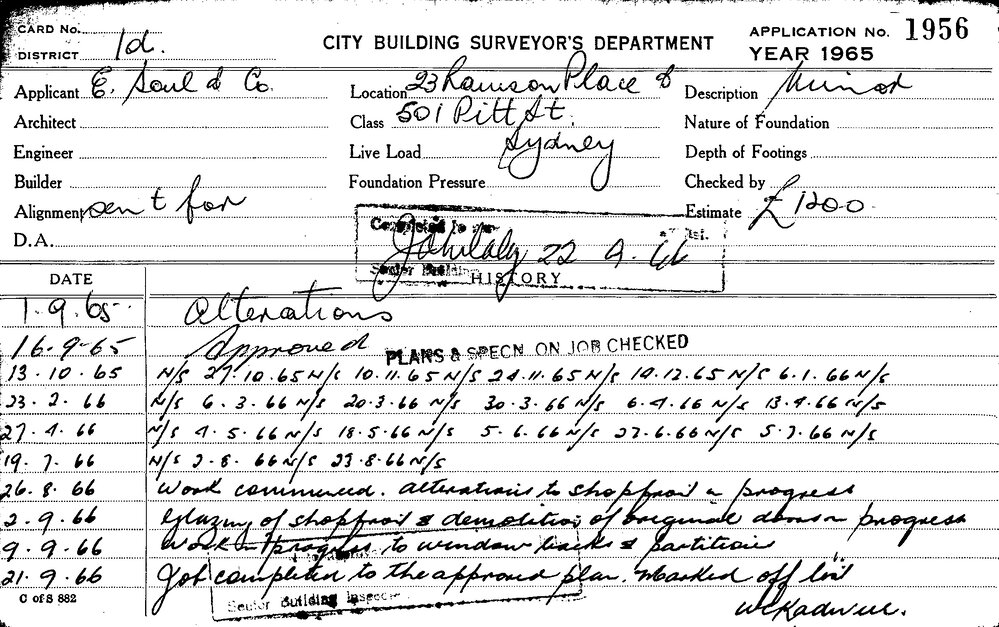 CARD No.
DISTRICT 1d.
CITY BUILDING SURVEYOR'S DEPARTMENT
APPLICATION No. 1956
YEAR 1965
Applicant E. Soul & Co.
Location 23 Rawson Place &
Description Minor
Architect
Class 501 Pitt St.
Nature of Foundation
Engineer
Live Load Sydney
Depth of Footings
Builder
Foundation Pressure
Checked by
Alignment sent for
Estimate £1200
D.A.
Completed to
22 9. 66
Senior Building
HISTORY
DATE
1.9.65 Alterations
16.9.65 Approved PLANS & SPECN ON JOB CHECKED
13.10.65 N/S 27.10.65 N/S 10.11.65 N/S 24.11.65 N/S 14.12.65 N/S 6.1.66 N/S
23.2.66 N/S 6.3.66 N/S 20.3.66 N/S 30.3.66 N/S 6.4.66 N/S 13.4.66 N/S
27.4.66 N/S 4.5.66 N/S 18.5.66 N/S 5.6.66 N/S 22.6.66 N/S 5.7.66 N/S
19.7.66 N/S 2.8.66 N/S 23.8.66 N/S
26.8.66 Work commenced. Alterations to shopfront in progress
2.9.66 Glazing of shopfront & demolition of original doors in progress
9.9.66 Work in progress to window backs & partitions
21.9.66 Job completed to the approved plan. Marked off list
C of S 882
Senior Building Inspector